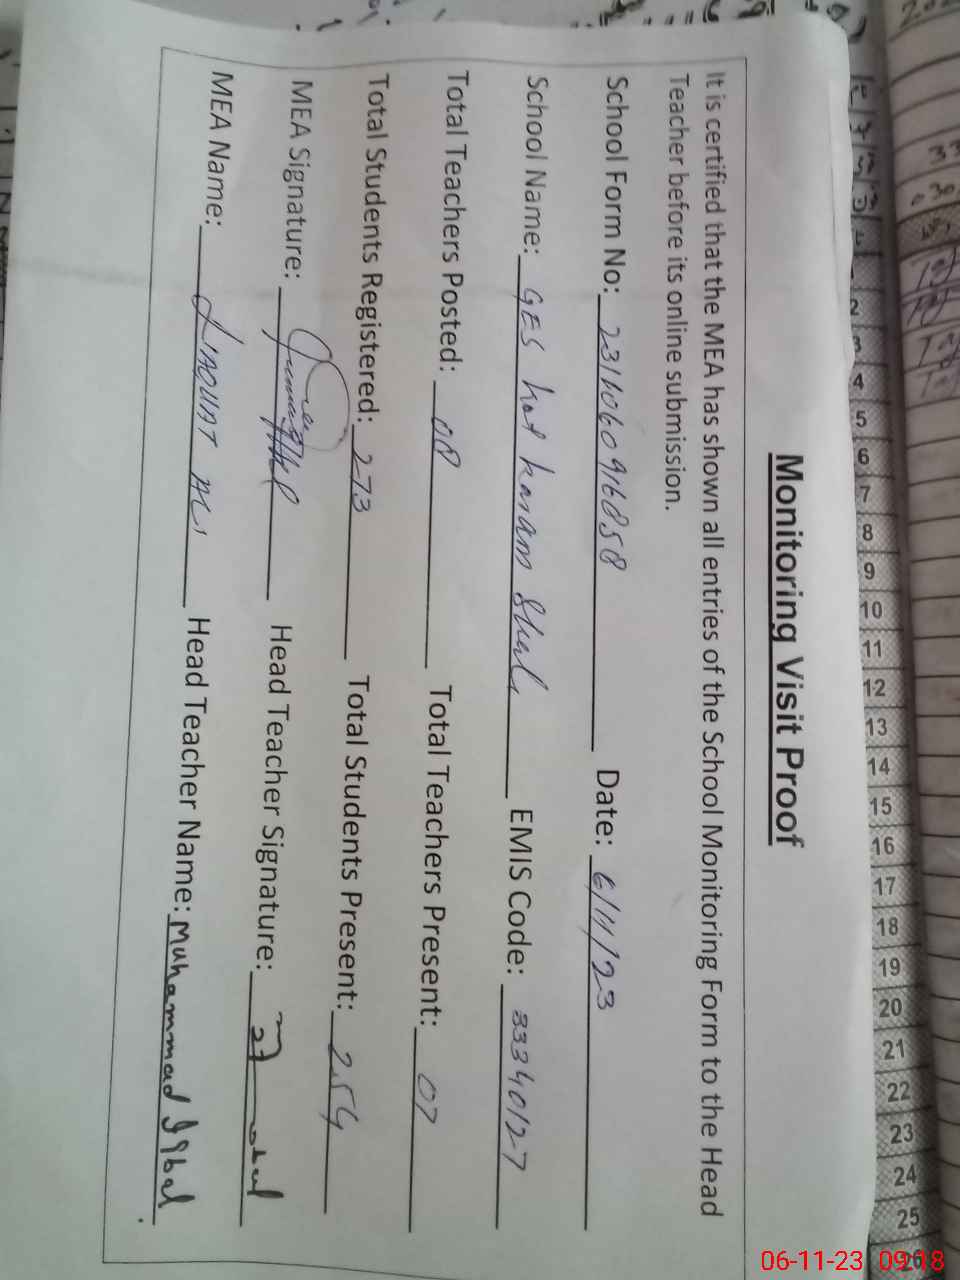 Monitoring Visit Proof
It is certified that the MEA has shown all entries of the School Monitoring Form to the Head
Teacher before its online submission.
School Form No: Date: 6/11/23
School Name: GES kot karam Shah EMIS Code: 33340127
Total Teachers Posted: 08 Total Teachers Present: 07
Total Students Registered: 273 Total Students Present: 254
MEA Signature: Head Teacher Signature:
MEA Name: LIAQUAT ALI Head Teacher Name: Muhammad Iqbal
1
2
3
4
5
6
7
8
9
10
11
12
13
14
15
16
17
18
19
20
21
22
23
24
25
26
06-11-23 09:18